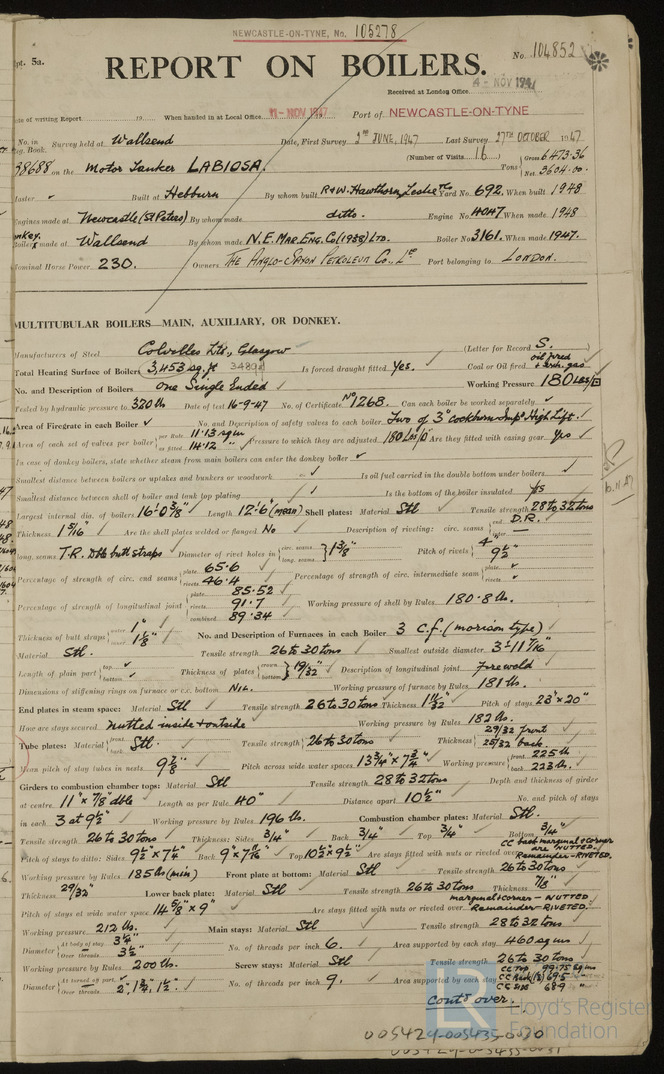 NEWCASTLE-ON-TYNE, No. 105278
pt. 5a.
No. 104852
REPORT ON BOILERS.
4 - NOV 1947
Received at London Office
of writing Report 19 When handed in at Local Office 19 Port of NEWCASTLE-ON-TYNE
No. in Survey held at Wallsend Date, First Survey 2nd JUNE, 1947 Last Survey 27TH OCTOBER 1947
Book.
38688 on the Motor Tanker LABIOSA. (Number of Visits 16) Tons Gross 6473.36 Net 3604.00
Built at Hebburn By whom built R&W. Hawthorn Leslie & Co Yard No. 692. When built 1948
Engines made at Newcastle (St Peters) By whom made ditto. Engine No. 4047 When made 1948
made at Wallsend By whom made N.E. Mar. Eng. Co (1938) LTD. Boiler No 3161. When made 1947.
Nominal Horse Power 230. Owners THE ANGLO-SAXON PETROLEUM Co., Ltd Port belonging to LONDON.
MULTITUBULAR BOILERS—MAIN, AUXILIARY, OR DONKEY.
Manufacturers of Steel Colvilles Ltd., Glasgow (Letter for Record S.)
Total Heating Surface of Boilers 3,453 sq. ft 3480 Is forced draught fitted Yes. Coal or Oil fired oil fired & exh. gas
No. and Description of Boilers One Single Ended Working Pressure 180 LBS/□"
Tested by hydraulic pressure to 320 lbs Date of test 16-9-47 No. of Certificate No 1268. Can each boiler be worked separately
Area of Firegrate in each Boiler No. and Description of safety valves to each boiler Two of 3" Cockburn Impd High Lift.
Area of each set of valves per boiler per Rule 11.13 sq in as fitted 14.12 " Pressure to which they are adjusted 180 Lbs/□" Are they fitted with easing gear Yes
In case of donkey boilers, state whether steam from main boilers can enter the donkey boiler
Smallest distance between boilers or uptakes and bunkers or woodwork Is oil fuel carried in the double bottom under boilers
Smallest distance between shell of boiler and tank top plating Is the bottom of the boiler insulated Yes
Largest internal dia. of boilers 16'-0 3/8" Length 12'-6" (MEAN) Shell plates: Material Stl Tensile strength 28 to 32 tons
Thickness 1 5/16" Are the shell plates welded or flanged No Description of riveting: circ. seams end D.R. inter —
long. seams T.R. Dble butt straps Diameter of rivet holes in circ. seams long. seams 1 3/8" Pitch of rivets 4" 9 1/2"
Percentage of strength of circ. end seams plate 65.6 rivets 46.4 Percentage of strength of circ. intermediate seam plate rivets
Percentage of strength of longitudinal joint plate 85.52 rivets 91.7 combined 89.34 Working pressure of shell by Rules 180.8 lbs.
Thickness of butt straps outer 1" inner 1 1/8" No. and Description of Furnaces in each Boiler 3 C.f. (morison type)
Material Stl. Tensile strength 26 to 30 tons Smallest outside diameter 3'-11 7/16"
Length of plain part top bottom Thickness of plates crown bottom 19/32" Description of longitudinal joint Fireweld
Dimensions of stiffening rings on furnace or c.c. bottom NIL. Working pressure of furnace by Rules 181 lbs.
End plates in steam space: Material Stl Tensile strength 26 to 30 tons Thickness 1 11/32" Pitch of stays 23" x 20"
How are stays secured Nutted inside & outside Working pressure by Rules 182 lbs.
Tube plates: Material front back Stl. Tensile strength 26 to 30 tons Thickness 29/32 front 25/32 back
Mean pitch of stay tubes in nests 9 7/8" Pitch across wide water spaces 13 3/4" x 7 3/4" Working pressure front 225 lb back 223 lb.
Girders to combustion chamber tops: Material Stl Tensile strength 28 to 32 tons Depth and thickness of girder
at centre 11" x 7/8" dble Length as per Rule 40" Distance apart 10 1/2" No. and pitch of stays
in each 3 at 9 1/2" Working pressure by Rules 196 lbs. Combustion chamber plates: Material Stl.
Tensile strength 26 to 30 tons Thickness: Sides 3/4" Back 3/4" Top 3/4" Bottom 3/4"
Pitch of stays to ditto: Sides 9 1/2" x 7 1/4" Back 9" x 7 7/16" Top 10 1/2" x 9 1/2" Are stays fitted with nuts or riveted over CC back marginal & corner are NUTTED. Remainder-RIVETED.
Working pressure by Rules 185 lbs (min) Front plate at bottom: Material Stl Tensile strength 26 to 30 tons
Thickness 29/32" Lower back plate: Material Stl Tensile strength 26 to 30 tons Thickness 7/8"
Pitch of stays at wide water space 14 5/8" x 9" Are stays fitted with nuts or riveted over marginal & corner - NUTTED Remainder-RIVETED.
Working pressure 212 lbs. Main stays: Material Stl Tensile strength 28 to 32 tons
Diameter At body of stay 3 1/4" Over threads 3 1/2" No. of threads per inch 6. Area supported by each stay 460 sq ins
Working pressure by Rules 200 lbs. Screw stays: Material Stl Tensile strength 26 to 30 tons
Diameter At turned off part Over threads 2", 1 3/4, 1 1/2". No. of threads per inch 9. Area supported by each stay CC Top 99.75 sq ins CC Back 69.5 " CC Side 68.9 "
contd over.
LR Lloyd's Register Foundation
005424-005435-0030